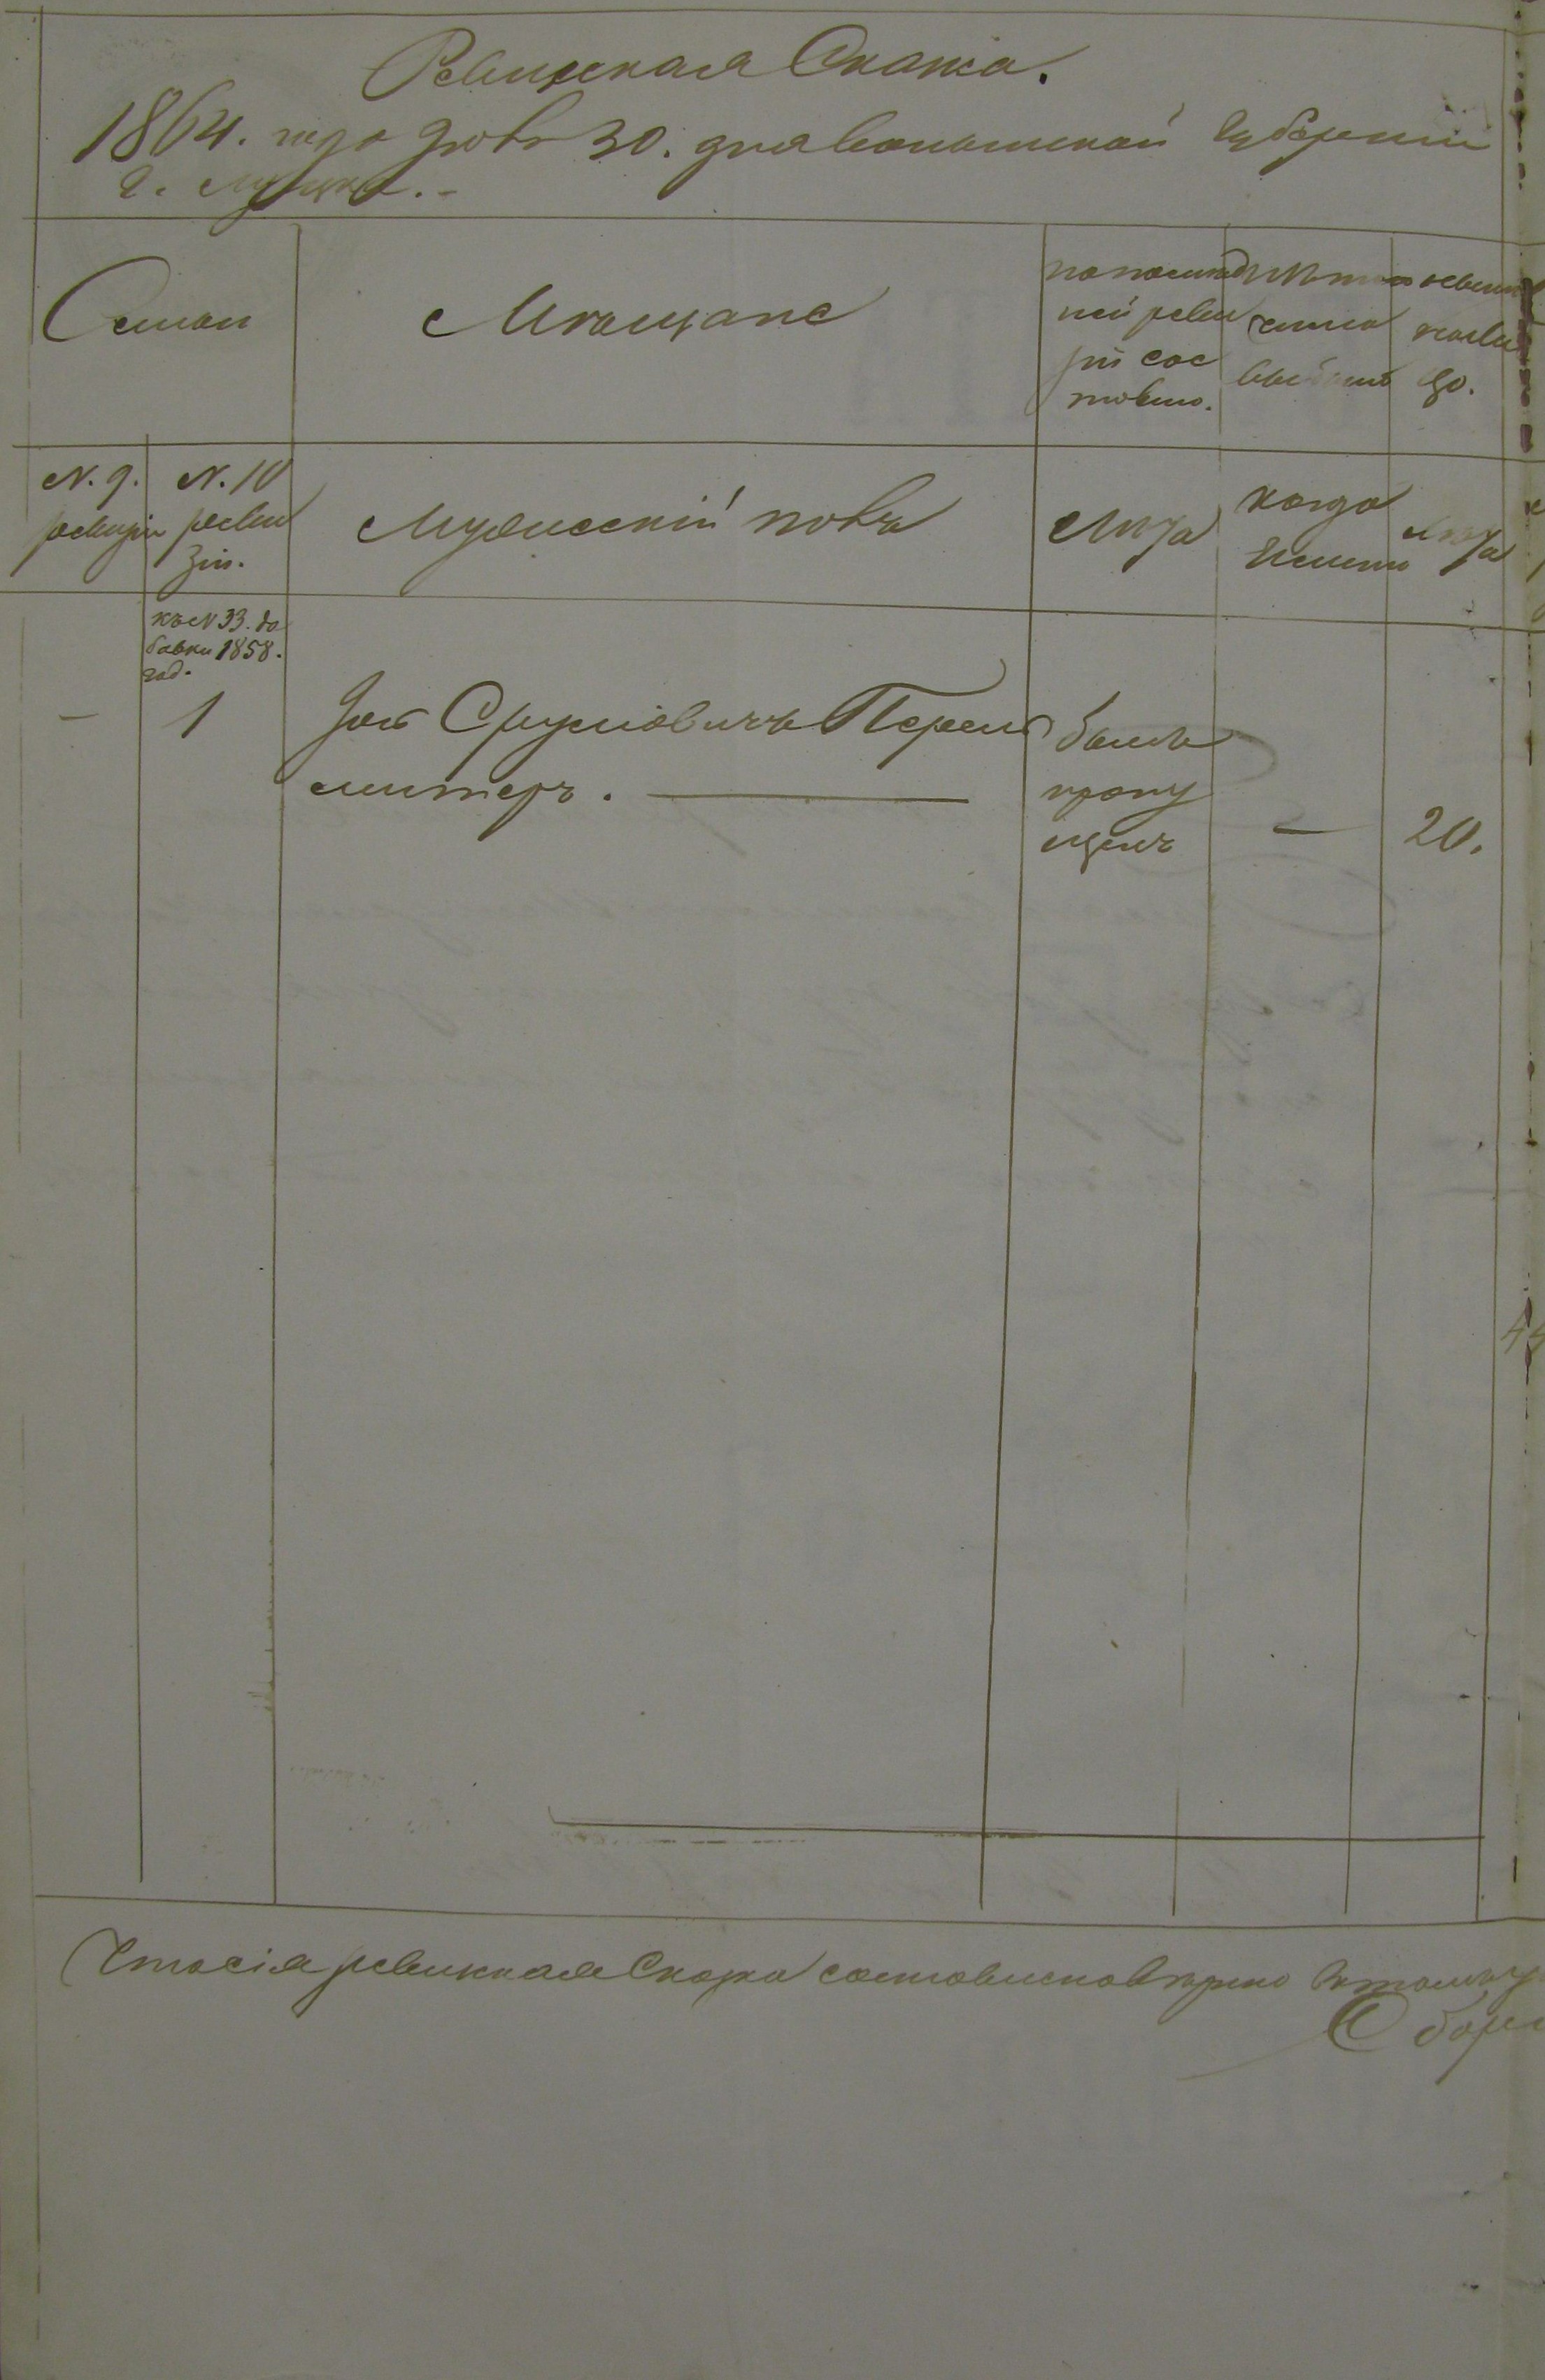 Ревизская Сказка.
1864. года 30. дня волынской губернии
г. Луцка.
Семьи
Мещане
по послед
ней реви
зіи сос
тояло.
изъ того
числа
выбыло
ных
налиц
цо.
N. 9.
ревизіи
N. 10
реви
зіи.
Мужескій полъ
Лѣта
когда
Именно
Лѣта
къ N 33. до
бавки 1858.
год.
—
1
Сруліовичъ Перель
мутеръ.
былъ
пропу
щенъ
—
20.
Что сія ревизская Сказка составлена вѣрно въ томъ